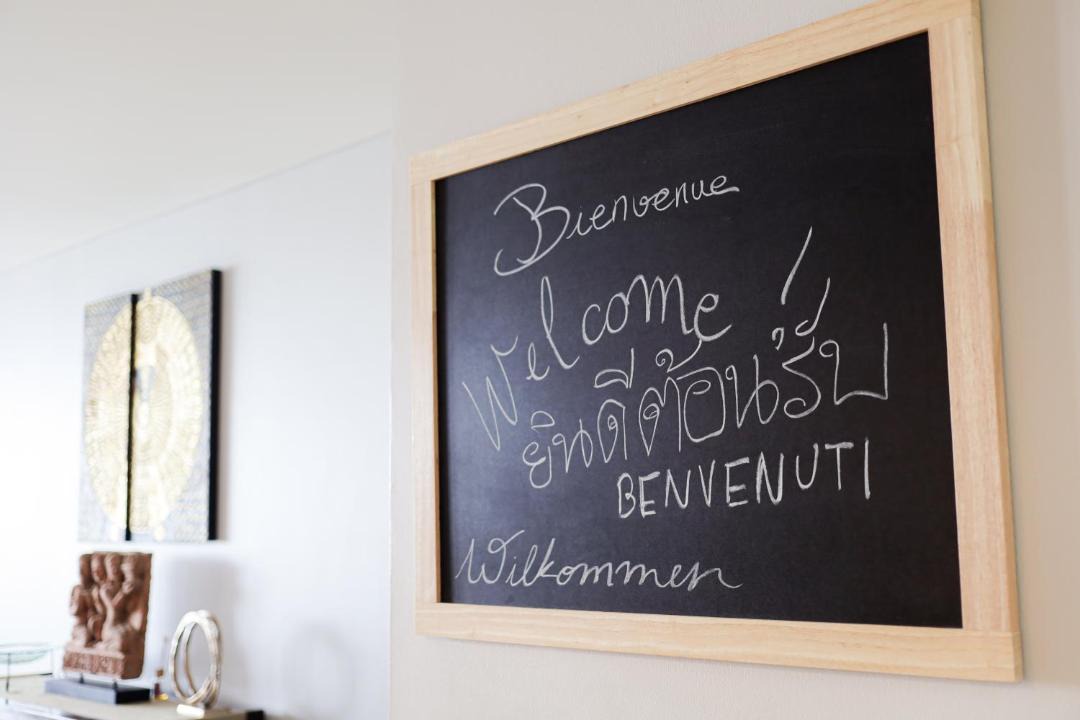 Bienvenue
Welcome
ยินดีต้อนรับ
BENVENUTI
Wilkommen